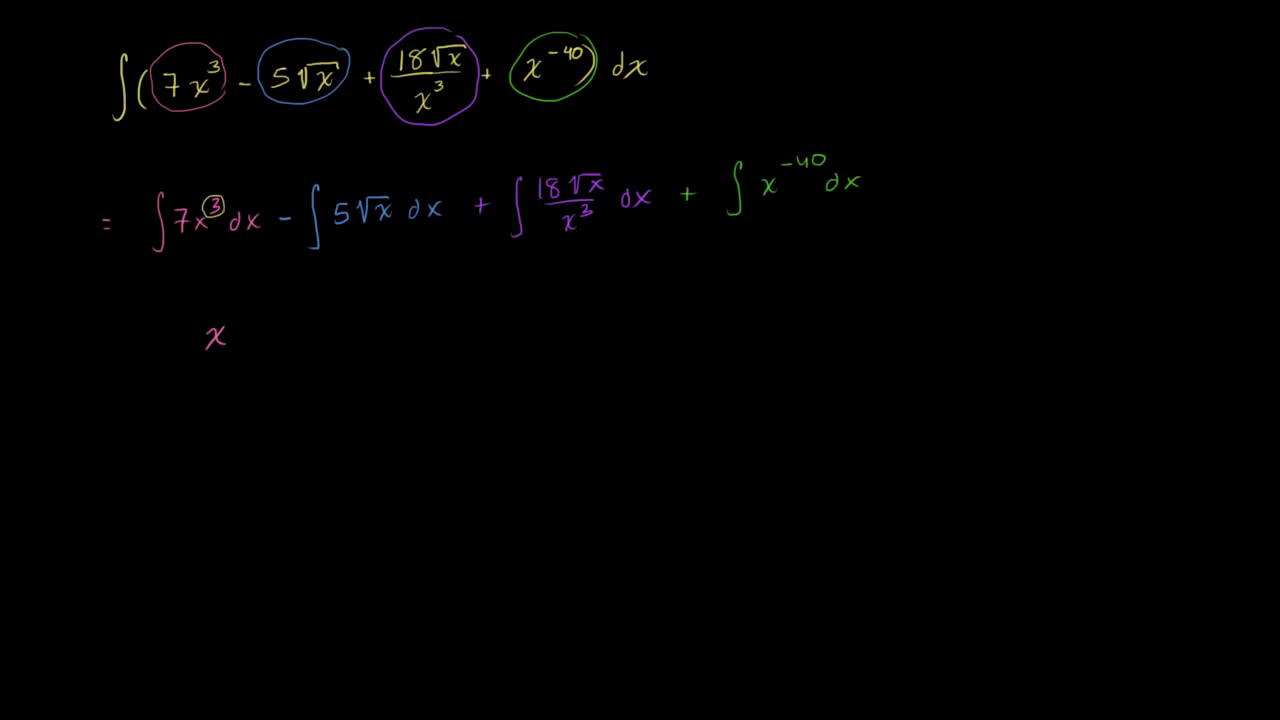 ∫(7x³ - 5√x + 18√x/x³ + x⁻⁴⁰) dx
= ∫7x³dx - ∫5√x dx + ∫18√x/x³ dx + ∫x⁻⁴⁰dx
x